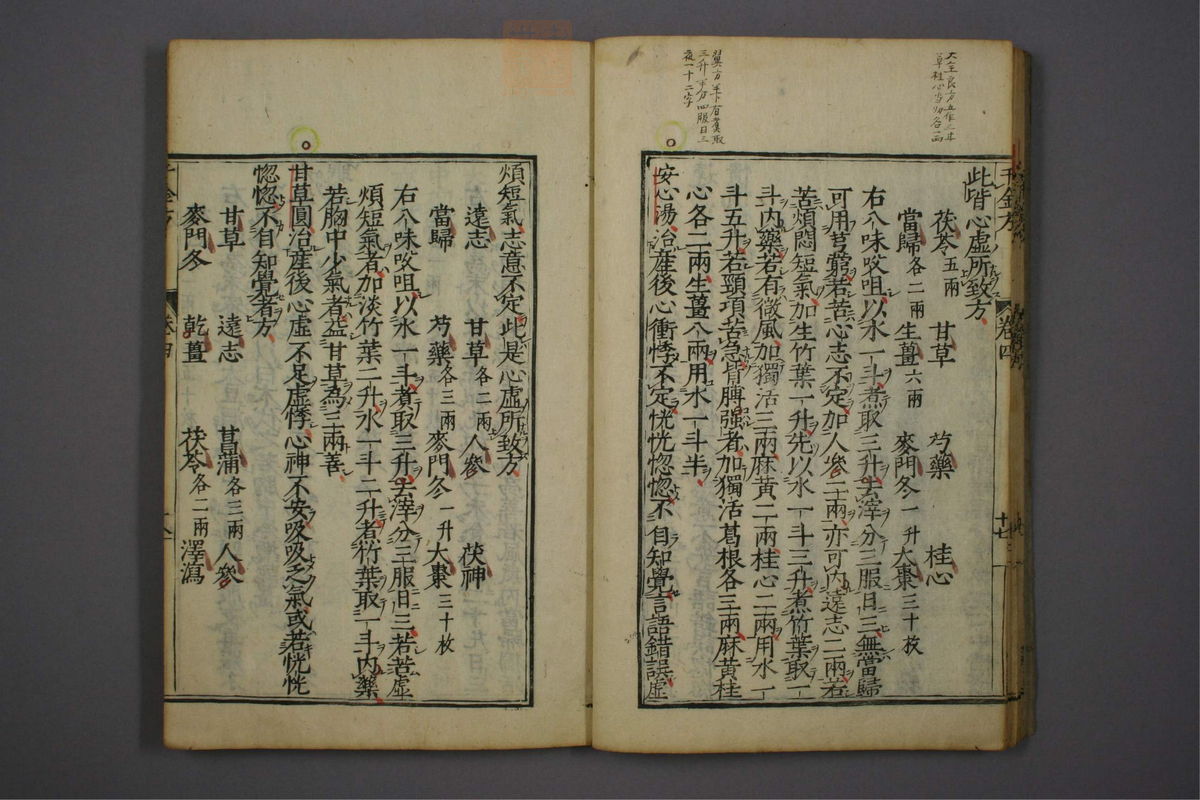 此皆心虛所致方
茯苓五兩 甘草 芍藥 桂心
當歸各二兩 生薑六兩 麥門冬一升 大棗三十枚
右八味㕮咀以水一斗煮取三升去滓分三服日三無當歸
可用芎藭若苦心志不定加人參二兩亦可內遠志二兩若
苦煩悶短氣加生竹葉一升先以水一斗三升煮竹葉取一
斗內藥若有微風加獨活三兩麻黃二兩桂心二兩用水一
斗五升若頸項苦急背膊強者加獨活葛根各三兩麻黃桂
心各二兩生薑八兩用水一斗半
安心湯治産後心衝悸不定恍恍惚惚不自知覺言語錯誤虛
煩短氣志意不定此是心虛所致方
遠志 甘草各二兩 人參 茯神
當歸 芍藥各三兩 麥門冬一升 大棗三十枚
右八味㕮咀以水一斗煮取三升去滓分三服日三若苦虛
煩短氣者加淡竹葉二升水一斗二升煮竹葉取一斗內藥
若胸中少氣者益甘草為三兩善
甘草圓治産後心虛不足虛悸心神不安吸吸乏氣或若恍恍
惚惚不自知覺者方
甘草 遠志 菖蒲各三兩 人參
麥門冬 乾薑 茯苓各二兩 澤瀉
千金方
卷四
十七
翼方半下有煮取
三升半分四服日三
夜一十二字